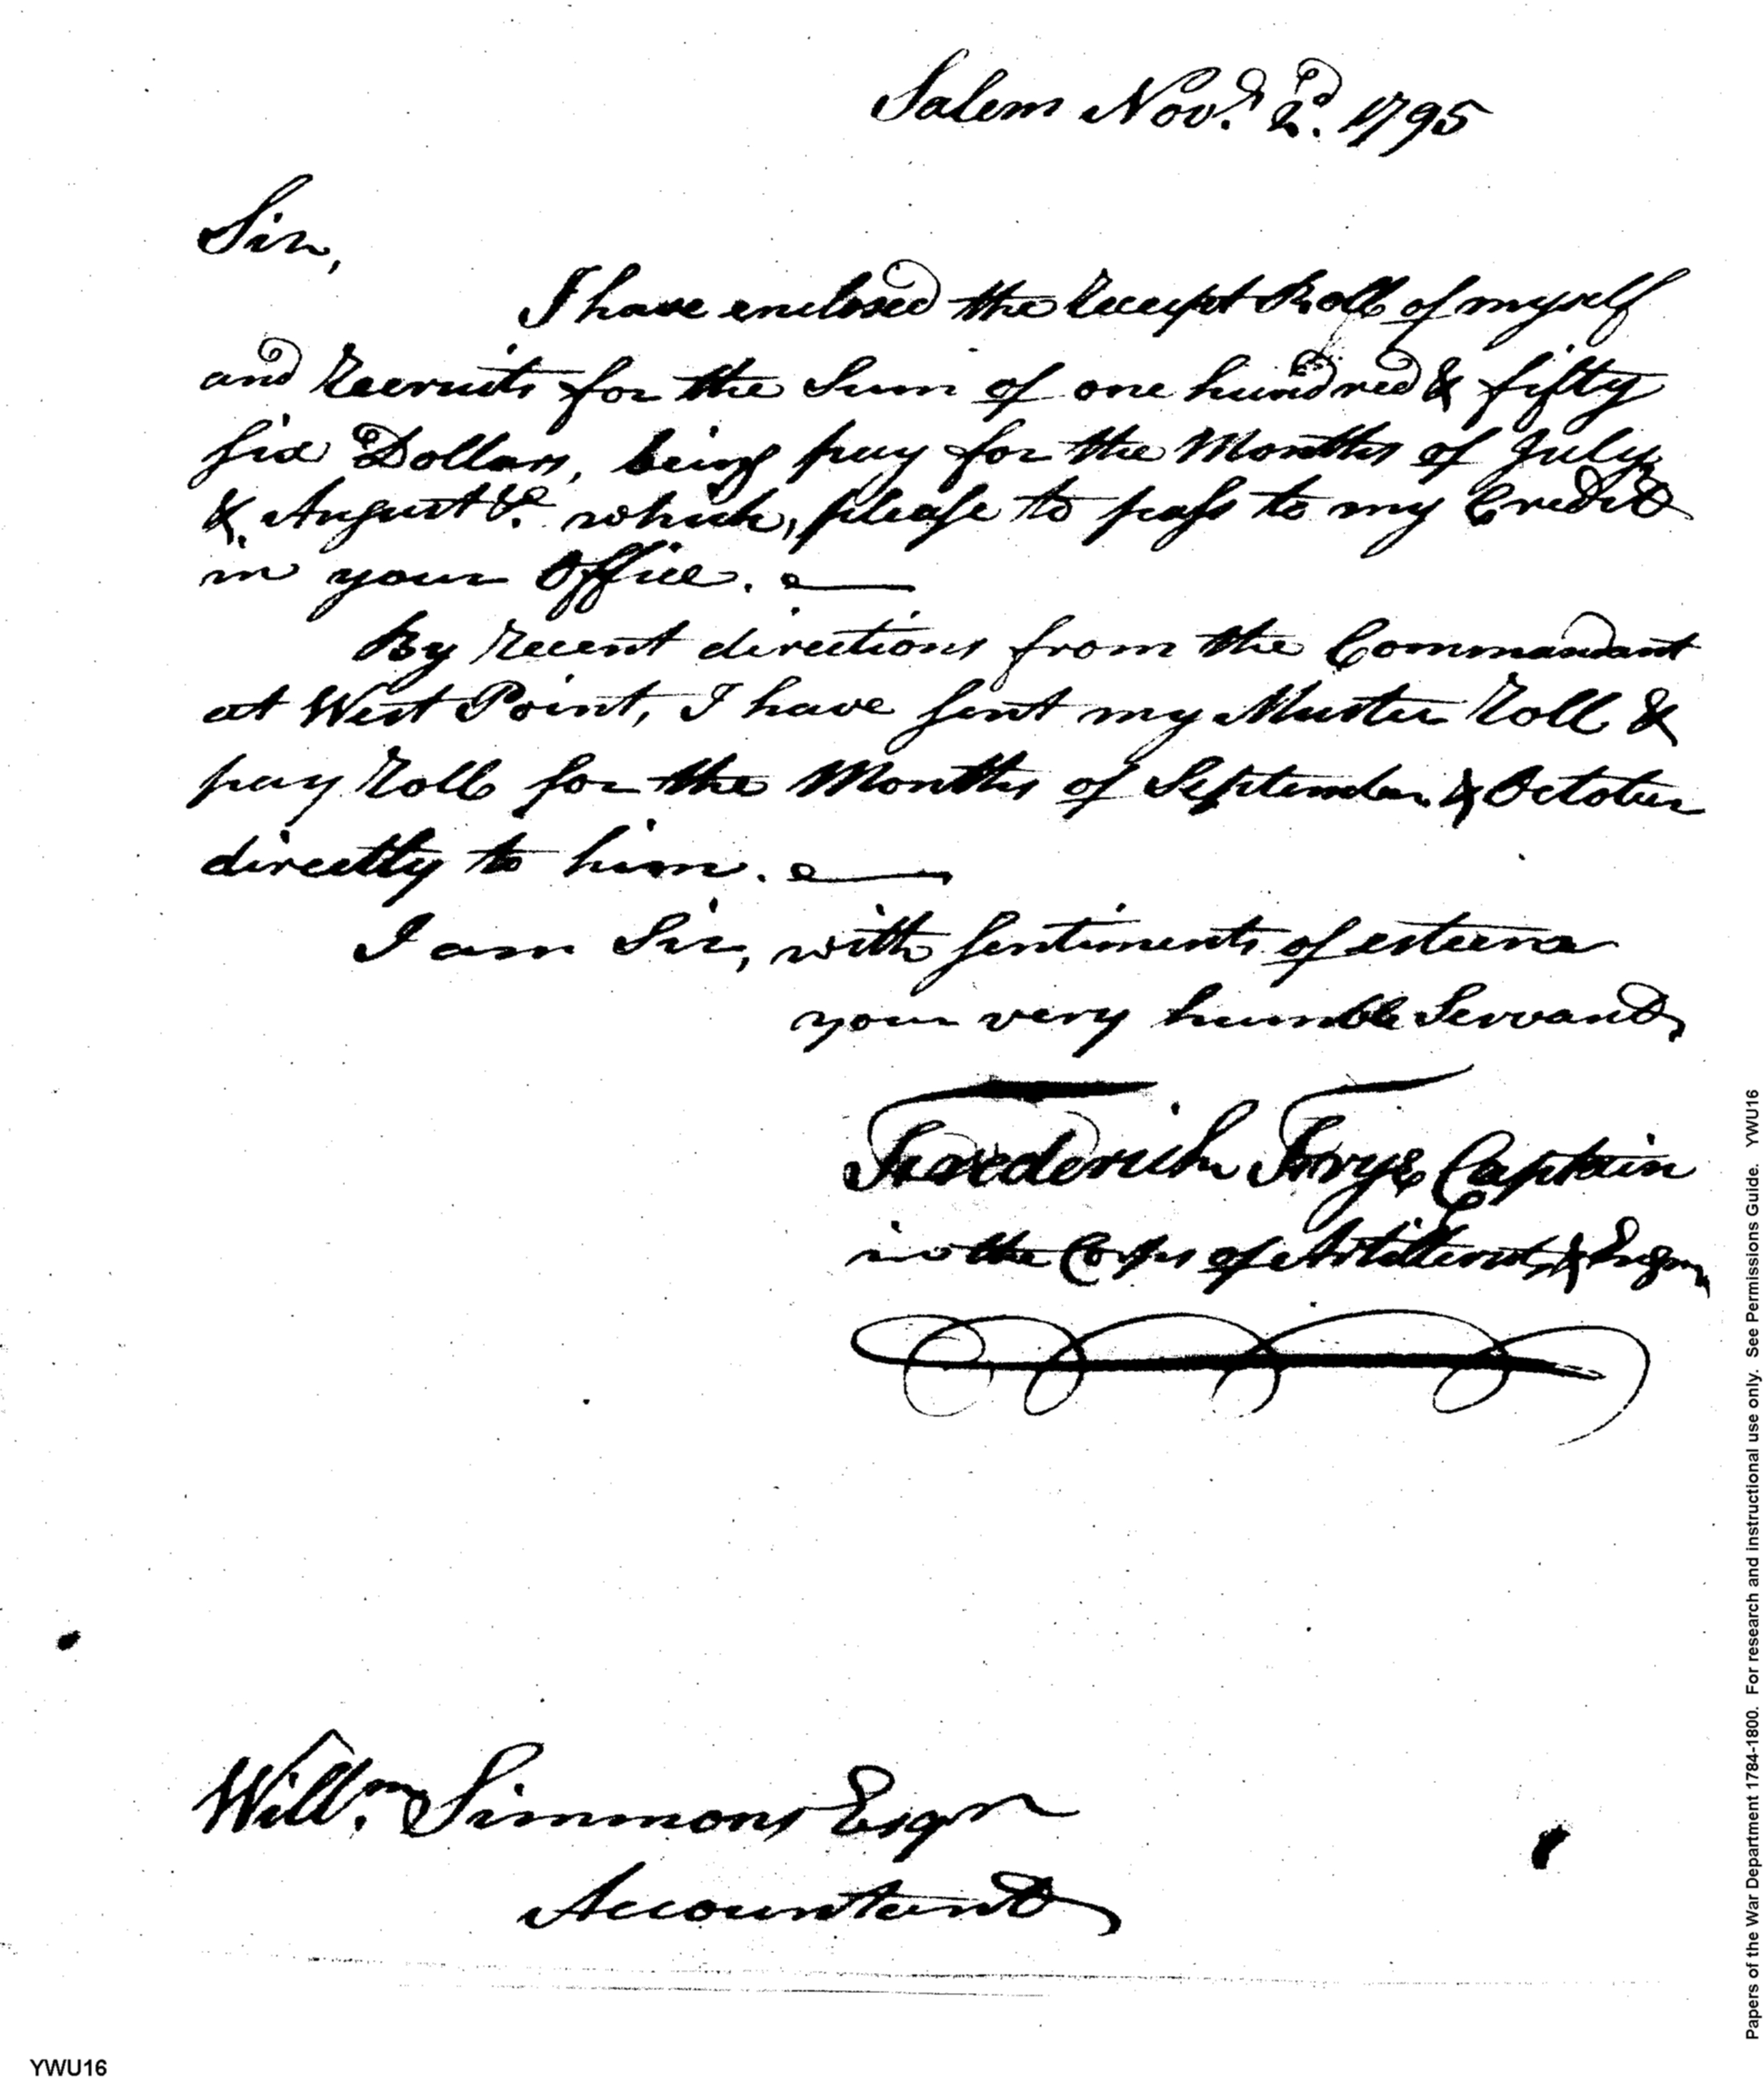 Salem Novr. 2d. 1795
Sir,
I have enclosed the receipt Roll of myself
and recruits for the Sum of one hundred & fifty
six Dollars, being pay for the Months of July
& August &c which, please to pass to my Credit
in your Office.
By recent directions from the Commandant
at West Point, I have sent my Muster roll &
pay roll for the Months of September & October
directly to him.
I am Sir, with sentiments of esteem
your very humble Servant,
Frederick Frye Captain
in the Corps of Artillerists & Engrs
Willm. Simmons Esqr
Accountant
YWU16
Papers of the War Department 1784-1800. For research and instructional use only. See Permissions Guide. YWU16